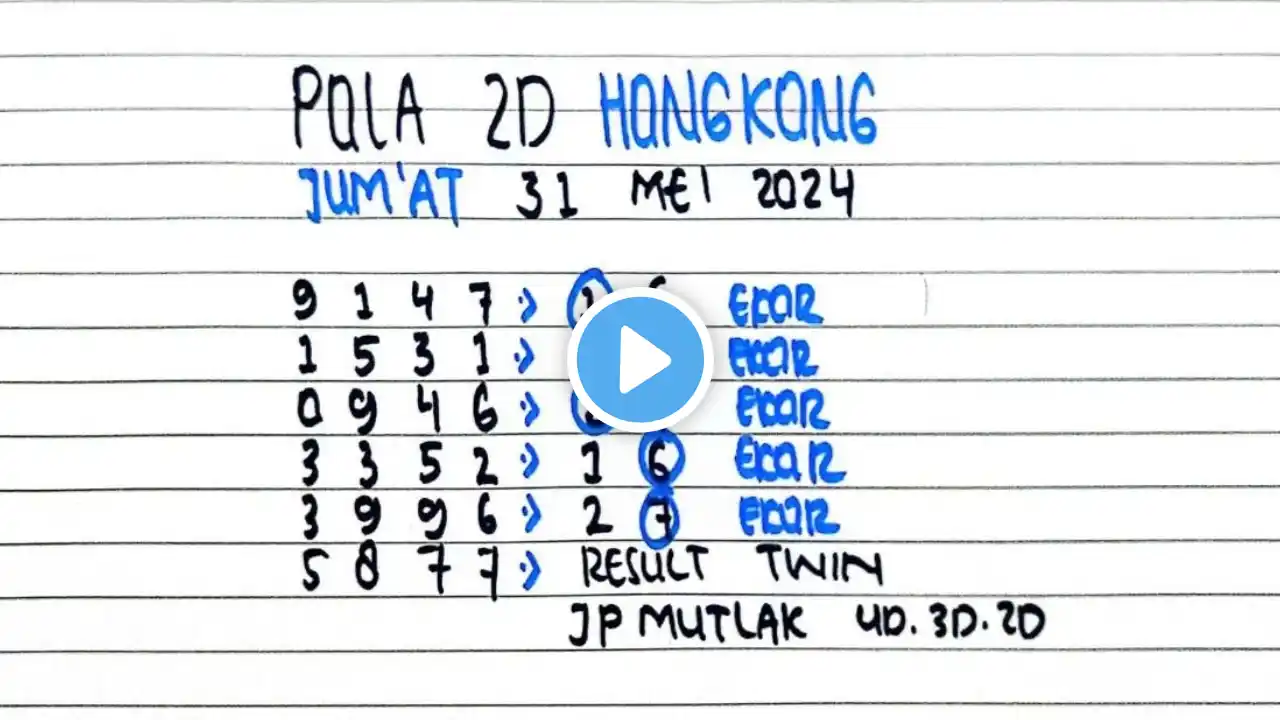 POLA 2D HONGKONG
JUM'AT 31 MEI 2024
9 1 4 7 EKOR
1 5 3 1 EKOR
0 9 4 6 EKOR
3 3 5 2 1 6 EKOR
3 9 9 6 2 7 EKOR
5 8 7 7 RESULT TWIN
JP MUTLAK 4D.3D.2D